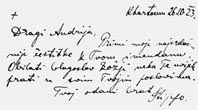 + Khartoum 26.10.73.
Dragi Andrija, Primi moje najsrdač
nije čestitke k Tvom imendanu.
Obilati blagoslov Božji neka Te uvijek
prati u svim Tvojim poslovima.
Tvoj odani brat
Stjepo.